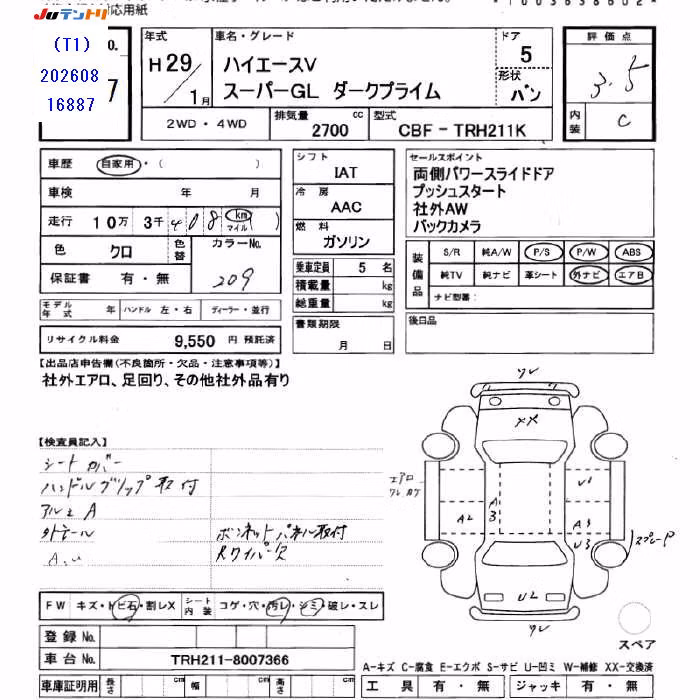 対応用紙
JUテントリ
(T1)
202608
16887
No.
7
年式
H29/1月
車名・グレード
ハイエースV
スーパーGL ダークプライム
ドア
5
形状
バン
評価点
3.5
内装
C
2WD・4WD
排気量
2700 cc
型式
CBF-TRH211K
車歴 自家用・( )
車検 年 月
走行 10万 3千 408 km マイル ( )
色 クロ 色替 カラーNo. 209
保証書 有・無
シフト
IAT
冷房
AAC
燃料
ガソリン
乗車定員 5 名
積載量 kg
総重量 kg
書類期限
月 日
セールスポイント
両側パワースライドドア
プッシュスタート
社外AW
バックカメラ
装備品
S/R 純A/W P/S P/W ABS
純TV 純ナビ 革シート 外ナビ エアB
ナビ型番:
後日品
モデル年式 年 ハンドル 左・右 ディーラー・並行
リサイクル料金 9,550 円 預託済
【出品店申告欄(不良箇所・欠品・注意事項等)】
社外エアロ、足回り、その他社外品有り
【検査員記入】
シートカバー
ハンドルグリップ取付
アルミ A
外テール
ボンネットパネル取付
Rワイパー欠
FW キズ・トビ石・割レX シート内装 コゲ・穴・汚レ・シミ・破レ・スレ
登録No.
車台No. TRH211-8007366
車庫証明用 長さ cm 幅 cm 高さ cm
ワレ
XX
エアロ
ワレカケ
A2
A3
U1
A3
U3
スプレーP
UL
ワレ
スペア
A-キズ C-腐食 E-エクボ S-サビ U-凹ミ W-補修 XX-交換済
工具 有・無 ジャッキ 有・無